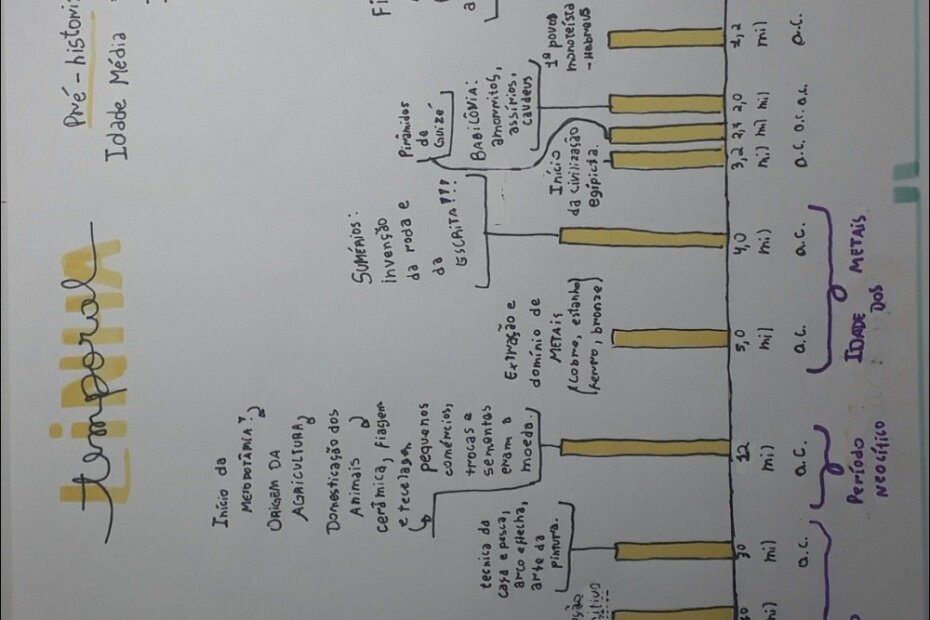 LINHA
temporal
Pré-históri
Idade Média
técnica da
casa e pesca,
arco e flecha,
arte da
pintura.
Início da
MESOPOTÂMIA!
ORIGEM DA
AGRICULTURA
Domesticação dos
Animais
cerâmica, fiagem
e tecelagem
pequenos
comércios,
trocas e
sementes
eram a
moeda.
Extração e
domínio de
METAIS
(Cobre, estanho
ferro, bronze)
SUMÉRIOS:
invenção
da roda e
da
ESCRITA!!!
Início
da civilização
egípicia.
Pirâmides
de
Guizé
BABILÔNIA:
amorritos,
assírios,
caudeus
1º povos
monoteísta
- Hebreus
30
mil
a.C.
12
mil
a.C.
5,0
mil
a.C.
4,0
mil
a.C.
3,2
mil
a.C.
2,7
mil
a.C.
2,0
mil
a.C.
1,2
mil
a.C.
Período
NEOLÍTICO
IDADE DOS
METAIS